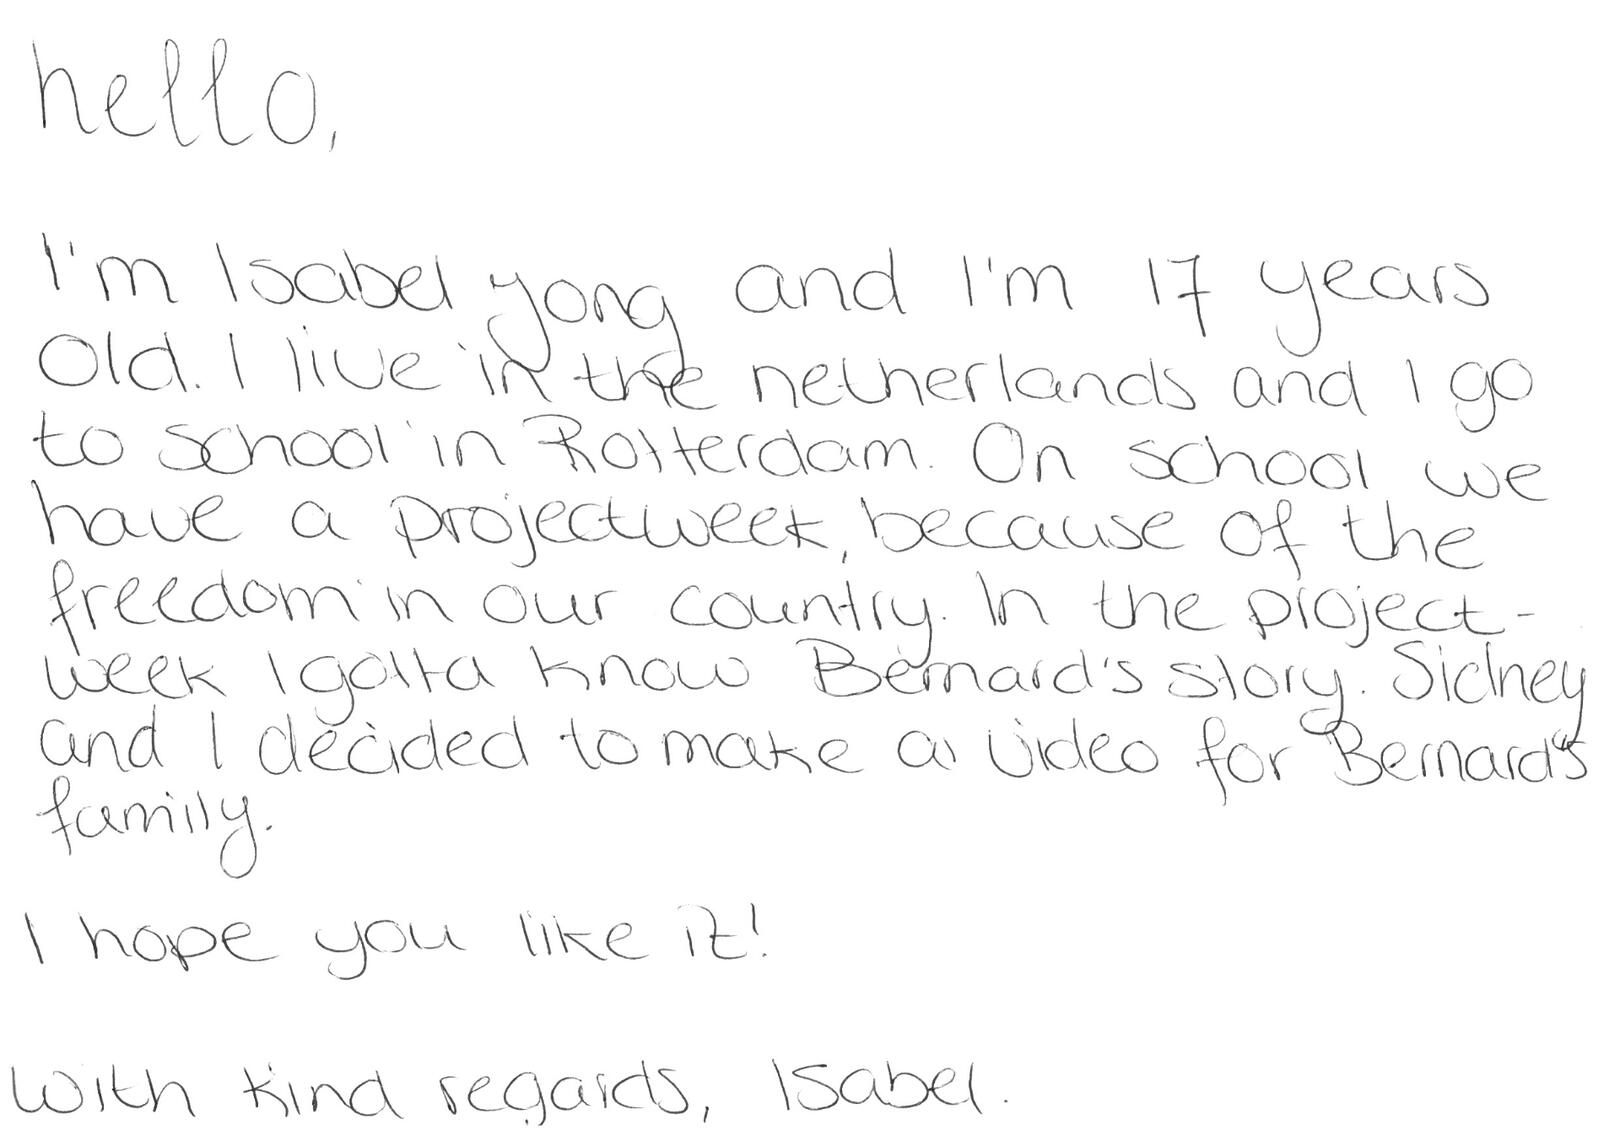 hello,
I'm Isabel yong and I'm 17 years
old. I live in the netherlands and I go
to school in Rotterdam. On school we
have a projectweek, because of the
freedom in our country. In the project-
week I gotta know Bernard's story. Sidney
and I decided to make a video for Bernard's
family.
I hope you like it!
With kind regards, Isabel.